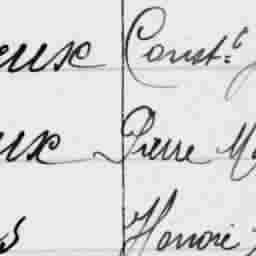 eux Const.e
ux Pierre M
s Honoré